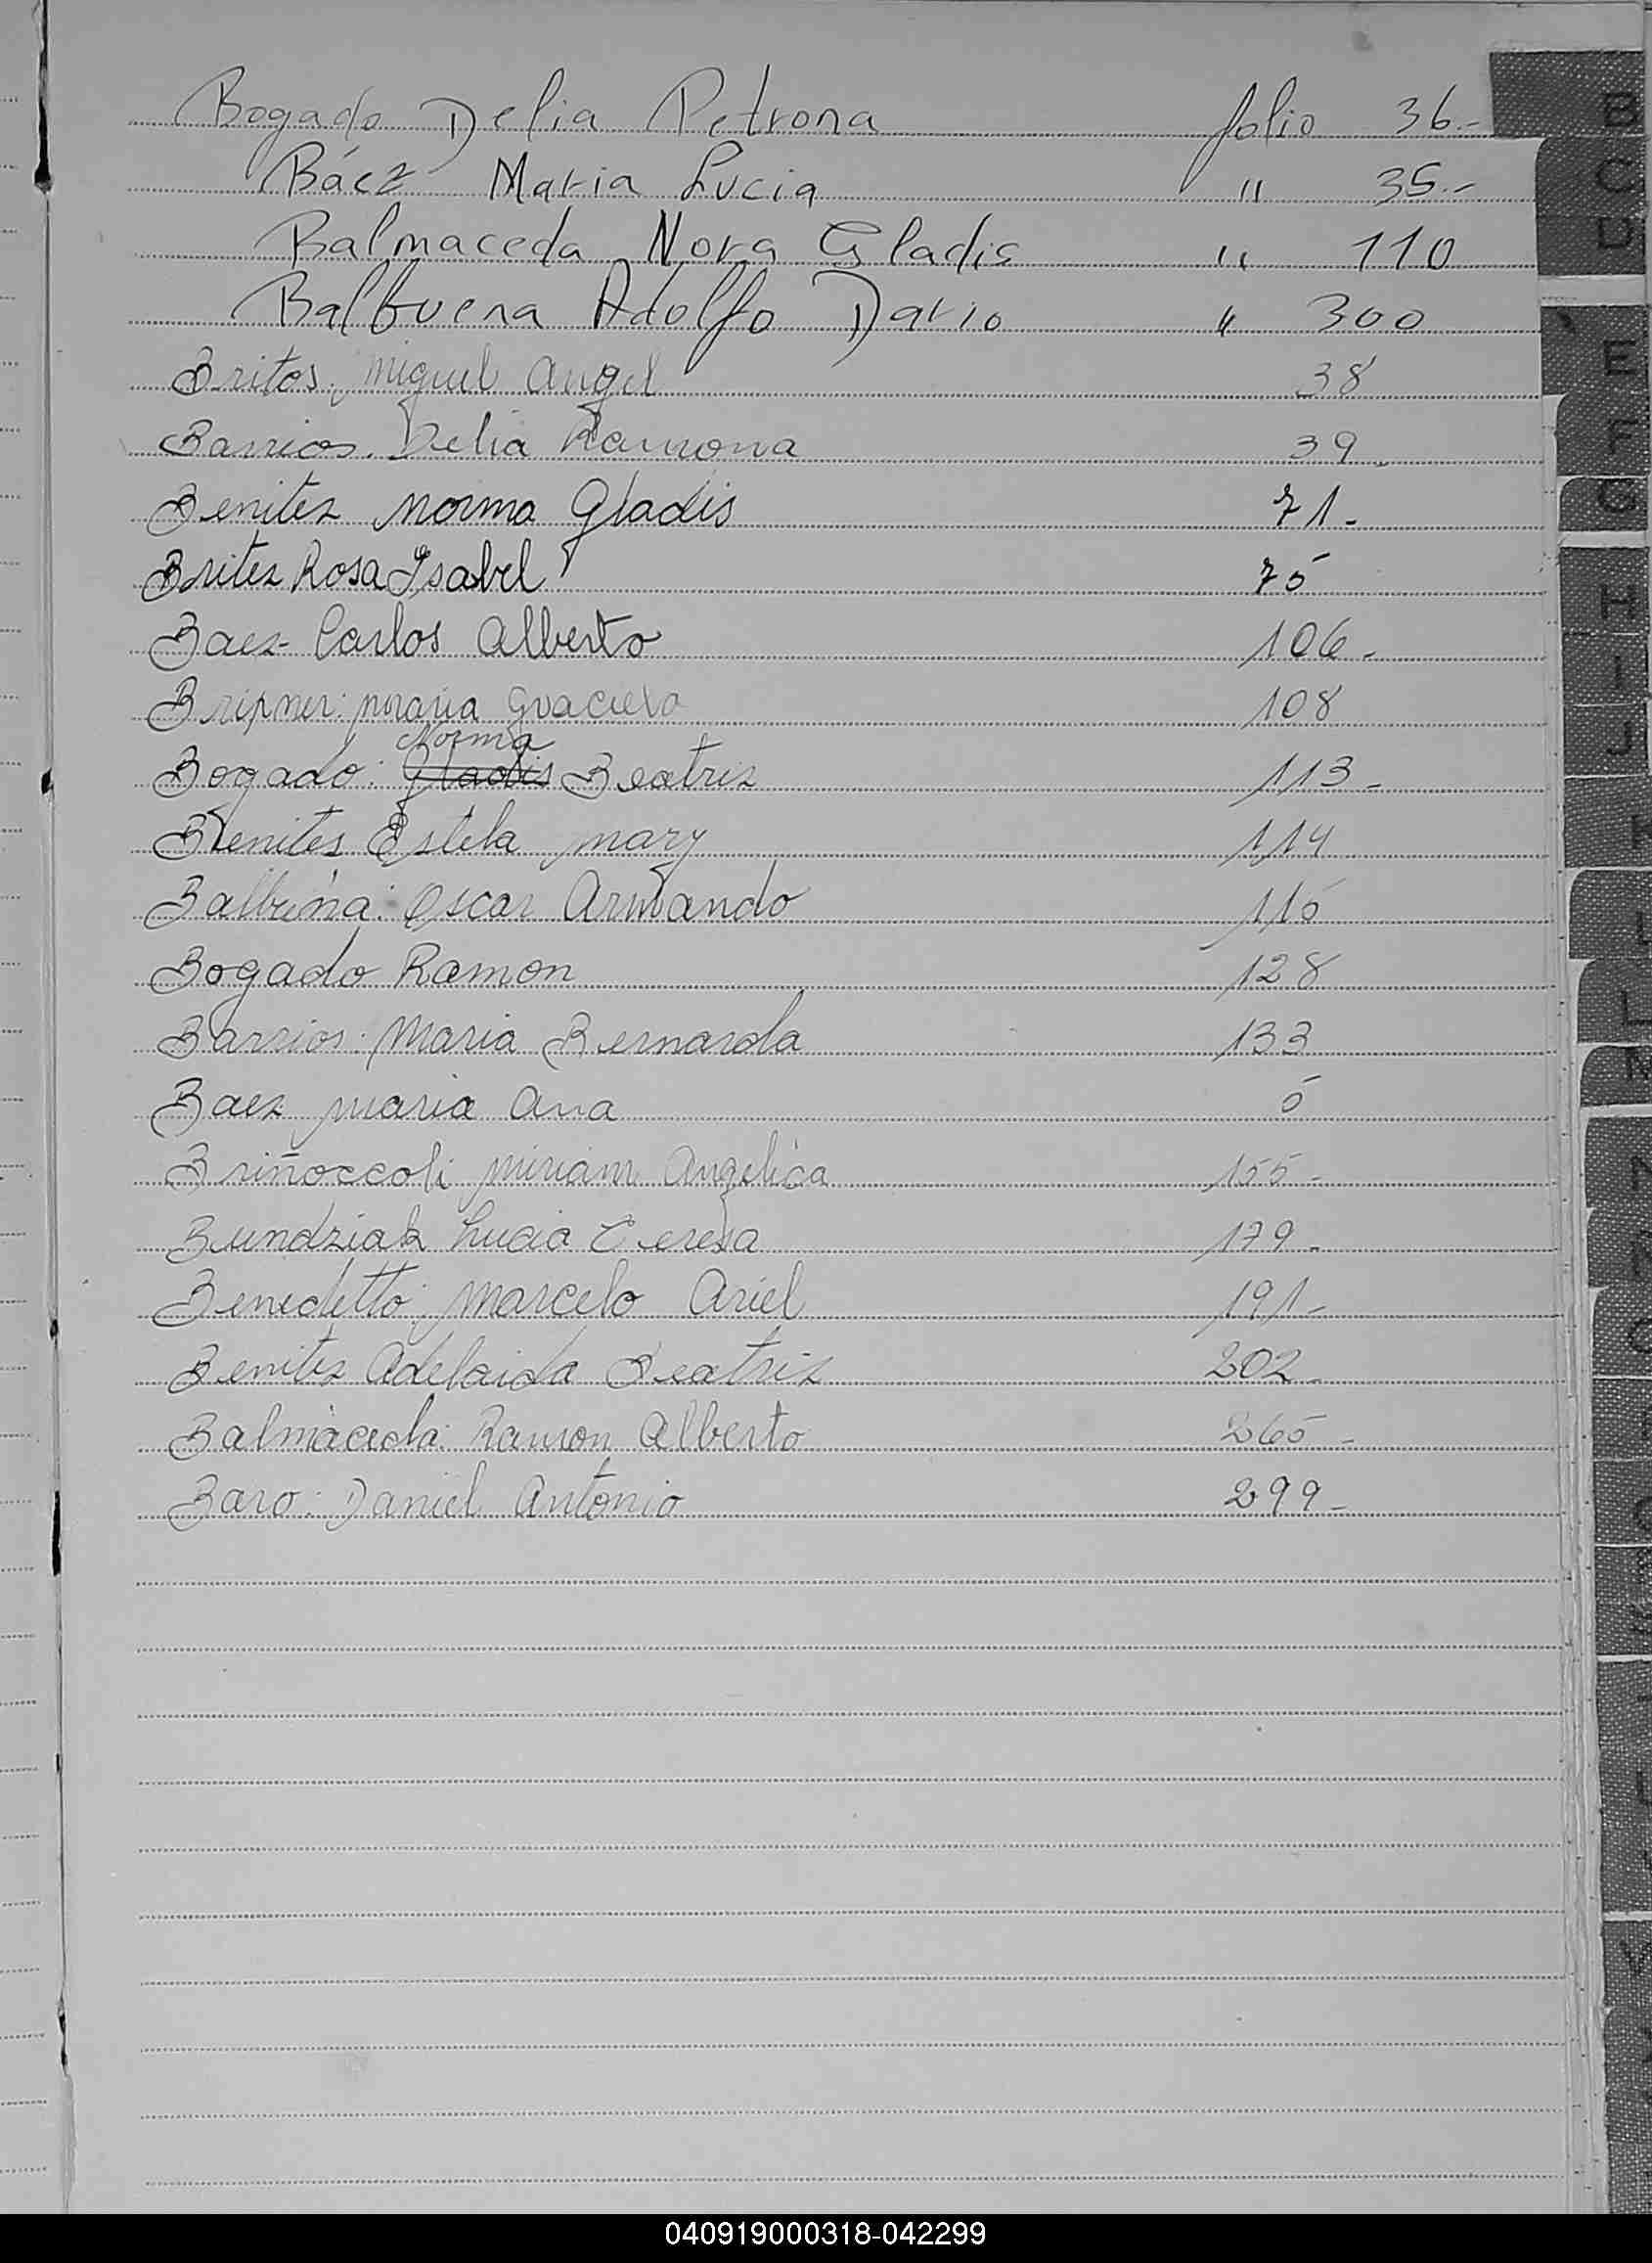 Bogado Delia Petrona folio 36.-
Báez Maria Lucia " 35.-
Balmaceda Nora Gladis " 110
Balbuena Adolfo Dario " 300
Britos. Miguel Angel 38
Barrios. Delia Ramona 39-
Benitez Norma Gladis 71-
Britez Rosa Ysabel 75
Baez- Carlos Alberto 106-
maria Graciela 108
Norma
Bogado: Gladis Beatriz 113-
Benites Estela mary 114
Balbuena: Oscar Armando 115
Bogado Ramon 128
Barrios: Maria Bernarda 133
Baez maria Ana 5
Briñoccoli Miriam Angelica 155-
Bundziak Lucia Teresa 179-
Benedetto: Marcelo Ariel 191-
Benitez Adelaida Beatriz 202-
Balmaceda: Ramon Alberto 265-
Baro: Daniel Antonio 299-
B
C
D
E
F
G
H
I
J
040919000318-042299